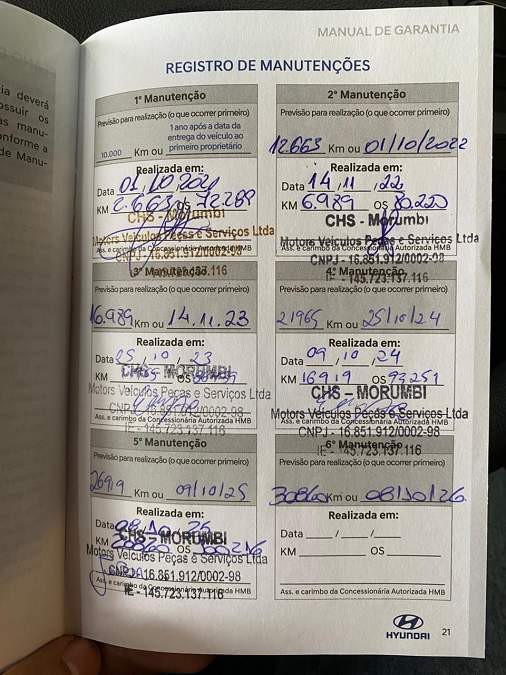 MANUAL DE GARANTIA
ia deverá
ossuir os
as manu-
onforme a
de Manu-
REGISTRO DE MANUTENÇÕES
1ª Manutenção
Previsão para realização (o que ocorrer primeiro)
10.000 Km ou 1 ano após a data da
entrega do veículo ao
primeiro proprietário
Realizada em:
Data 01, 10, 2021
KM 2.663 OS 72.289
CHS - Morumbi
Motors Veiculos Peças e Serviços Ltda
Ass. e carimbo da Concessionária Autorizada HMB
CNPJ - 16.851.912/0002-98
145.723.137.116
2ª Manutenção
Previsão para realização (o que ocorrer primeiro)
12.663 Km ou 01/10/2022
Realizada em:
Data 14, 11, 22
KM 6.989 OS 80.220
CHS - Morumbi
Motors Veiculos Peças e Serviços Ltda
Ass. e carimbo da Concessionária Autorizada HMB
CNPJ - 16.851.912/0002-98
IE - 145.723.137.116
3ª Manutenção
16.989 Km ou 14.11.23
Realizada em:
Data 25, 10, 23
KM OS
CHS - MORUMBI
Motors Veiculos Peças e Serviços Ltda
Ass. e carimbo da Concessionária Autorizada HMB
CNPJ - 16.851.912/0002-98
IE - 145.723.137.116
4ª Manutenção
Previsão para realização (o que ocorrer primeiro)
21965 Km ou 25/10/24
Realizada em:
Data 09, 10, 24
KM 16919 OS 93251
CHS - MORUMBI
Motors Veiculos Peças e Serviços Ltda
Ass. e carimbo da Concessionária Autorizada HMB
CNPJ - 16.851.912/0002-98
IE - 145.723.137.116
5ª Manutenção
Previsão para realização (o que ocorrer primeiro)
26919 Km ou 09/10/25
Realizada em:
Data 08/10/25
KM 20860 OS 100216
CHS - MORUMBI
Motors Veiculos Peças e Serviços Ltda
CNPJ - 16.851.912/0002-98
Ass. e carimbo da Concessionária Autorizada HMB
IE - 145.723.137.116
6ª Manutenção
Previsão para realização (o que ocorrer primeiro)
30860 Km ou 08/10/26
Realizada em:
Data / /
KM OS
Ass. e carimbo da Concessionária Autorizada HMB
HYUNDAI
21